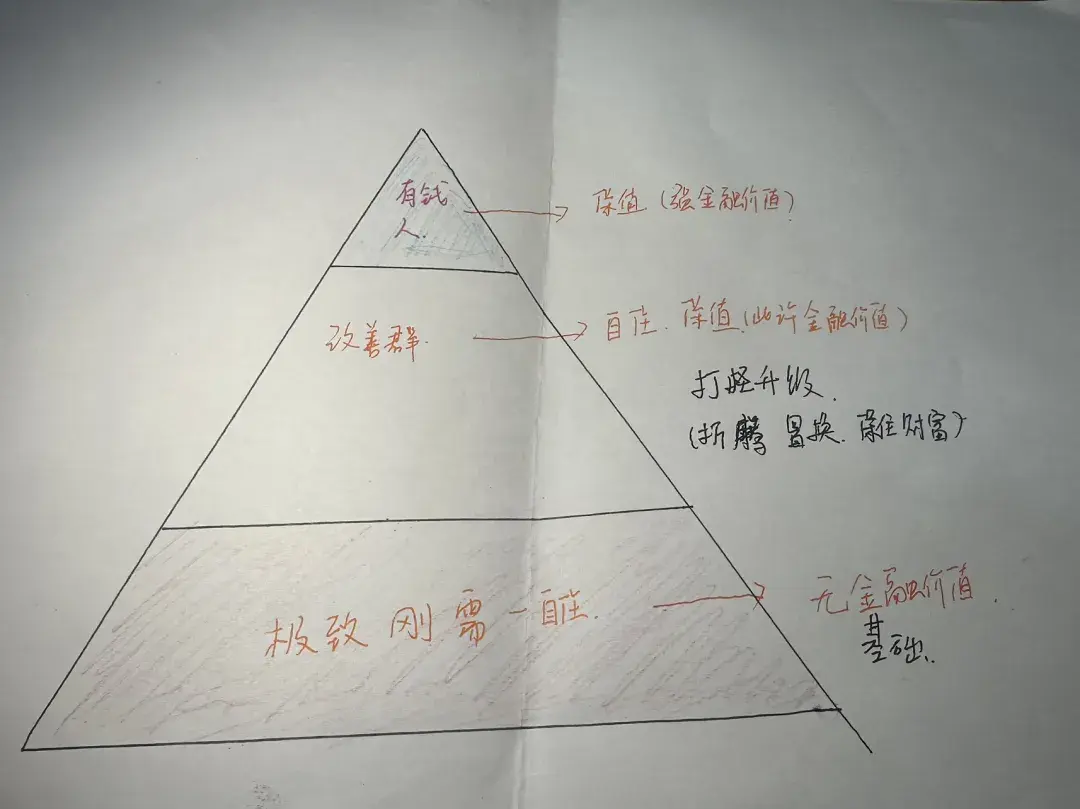 有钱
人.
保值(强金融价值)
改善群.
自住.保值.(些许金融价值)
打怪升级.
(折腾 置换.保住财富)
极致刚需-自住.
无金融价值.
基础.